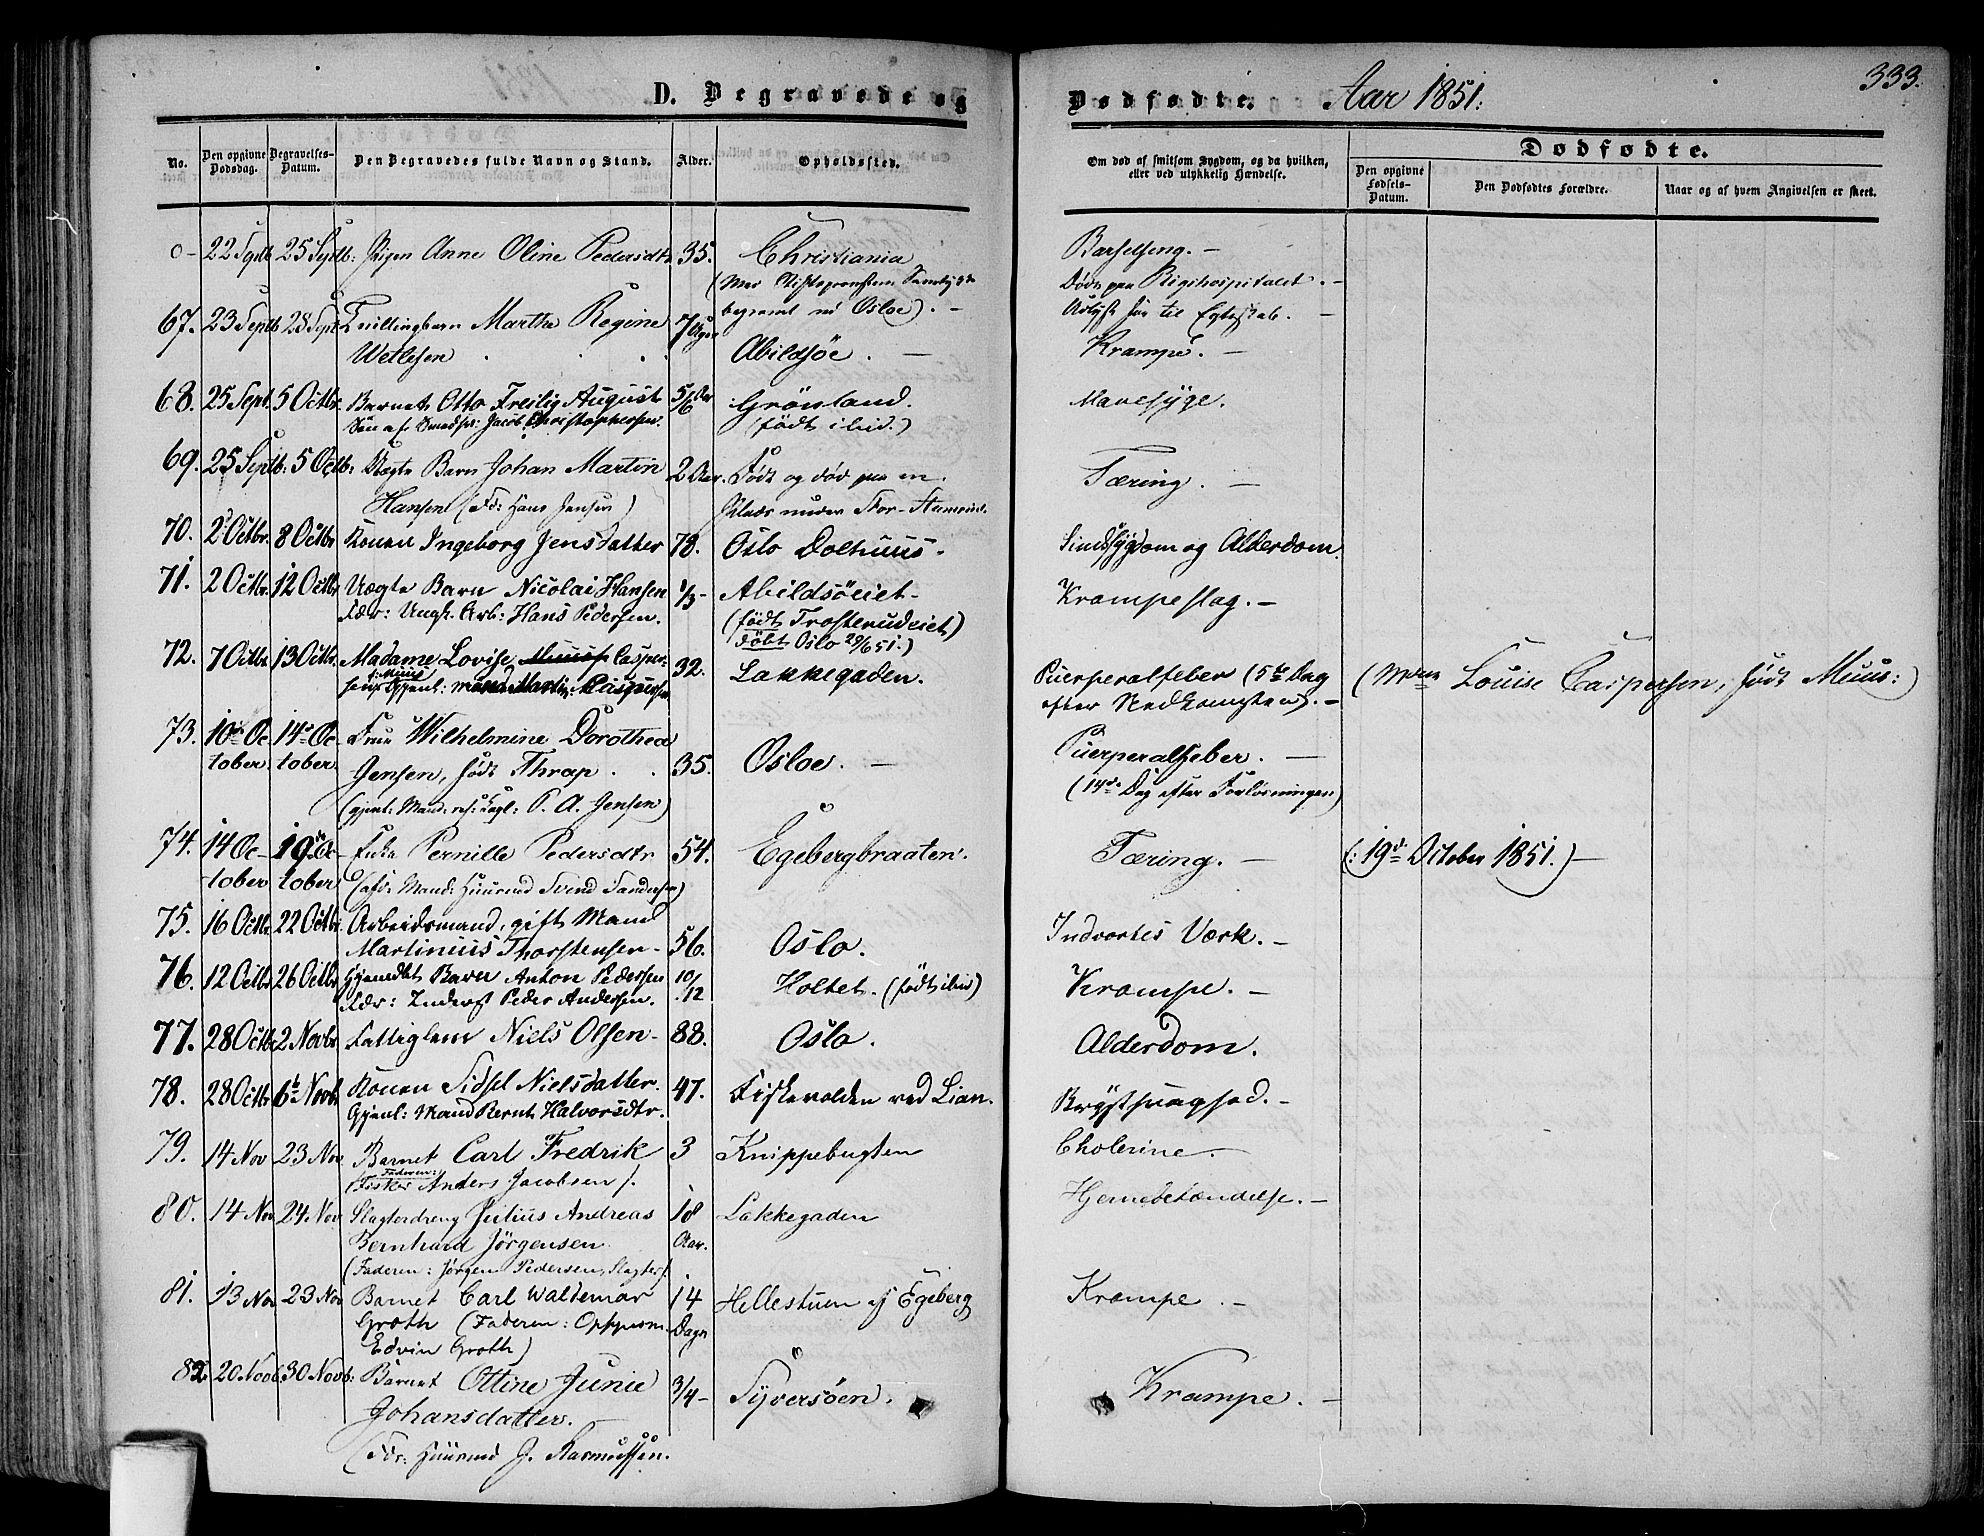 D. Begravede og
Dødfødte. Aar 1851. 333.
No. Den opgivne Dødsdag. Begravelses-Datum. Den Begravedes fulde Navn og Stand. Alder. Opholdssted.
Om død af smitsom Sygdom, og da hvilken, eller ved ulykkelig Hændelse.
Dødfødte.
Den opgivne Fødsels-Datum. Den Dødfødtes Forældre. Naar og af hvem Angivelsen er skeet.
0- 22 Septb 25 Septb: Pigen Anne Oline Pedersdtr 35. Christiania Barselseng. -
(Med Stiftsprovstens
begravet ved Osloe). - Døde paa Rigshospitalet. -
til Egteskab. -
67. 23 Septb 28 Sept Tvillingbarn Martha Regine 7 Uger
Wetlesen Abildsøe. - Krampe. -
68. 25 Sept. 5 Octbr. Barnet Otto August 5/6 Aar Grönland. Mavesyge.
Søn af Jacob Christophersen. (född ibid.)
69. 25 Septb: 5 Octb: Uægte Barn Johan Martin 2 Aar. Født og død paa en Tæring. -
Hansen (Fdr: Hans Jensen) Plads under
70. 2 Octbr. 8 Octbr Konen Ingeborg Jensdatter 78. Oslo Dolhuus- Sindssygdom og Alderdom.
71. 2 Octbr. 12 Octbr Uægte Barn Nicolai Hansen 1/3- Abildsöeiet- Krampeslag. -
Fdr: Ungk. Arb: Hans Pedersen. (född Trosterudeiet)
döbt Oslo 29/6 51.)
72. 7 Octbr 13 Octbr. Madame Lovise Casper- 32. Lakkegaden. Puerperalfeber (5te Dag (Mdme Louise Caspersen, født Muus:)
f: Muus
efter Nedkomsten). -
73. 10de Oc- 14de Oc- Frue Wilhelmine Dorothea
tober. tober. Jensen, født Thrap. 35. Osloe. - Puerperalfeber. -
(gjenl: Mand: res: Capl: P. A. Jensen) (14de Dag efter Forløsningen)
74. 14 Oc- 19de Oc- Enke Pernille Pedersdtr 54. Egebergbraaten. Tæring. - (: 19de October 1851. )-
tober tober (afd: Mand: Huusmd Svend Sandersen)
75. 16 Octbr 22 Octbr Arbeidsmand, gift Mand
Martinius Thorstensen- 56. Oslo. Indvortes Værk. -
76. 12 Octbr 26 Octbr Barn Anton Pedersen 10/12 Holtet. (født ibid) Krampe. -
Fdr: Inderst Peder Andersen.
77. 28 Octbr 2 Novbr. Fattiglem Niels Olsen- 88. Oslo. Alderdom.
78. 28 Octbr 6te Novbr Konen Sidsel Nielsdatter. 47. Fiskevolden ved Lian. Brystsvaghed. -
Gjenl: Mand Bernt Halvorsdtr.
79. 14 Nov 23 Nov Barnet Carl Fredrik 3 Knippebugten Cholerine. -
Faderen:
(Fisker Anders Jacobsen).
80. 14 Nov 24. Nov Slagterdreng Julius Andreas 18 Aar. Lakkegaden Hjernebetændelse. -
Bernhard Jörgensen
(Faderen: Jørgen Pedersen, Slagter).
81. 13 Nov 23 Nov Barnet Carl Waldemar 14 Dage Hellestuen i Egeberg Krampe. -
Groth (Faderen: Oppasm.
Edvin Groth)
82. 20 Novb. 30 Novb: Barnet Ottine Junie 3/4- Syversöen. Krampe. -
Johansdatter.
(Fdr: Huusmd J. Rasmussen.